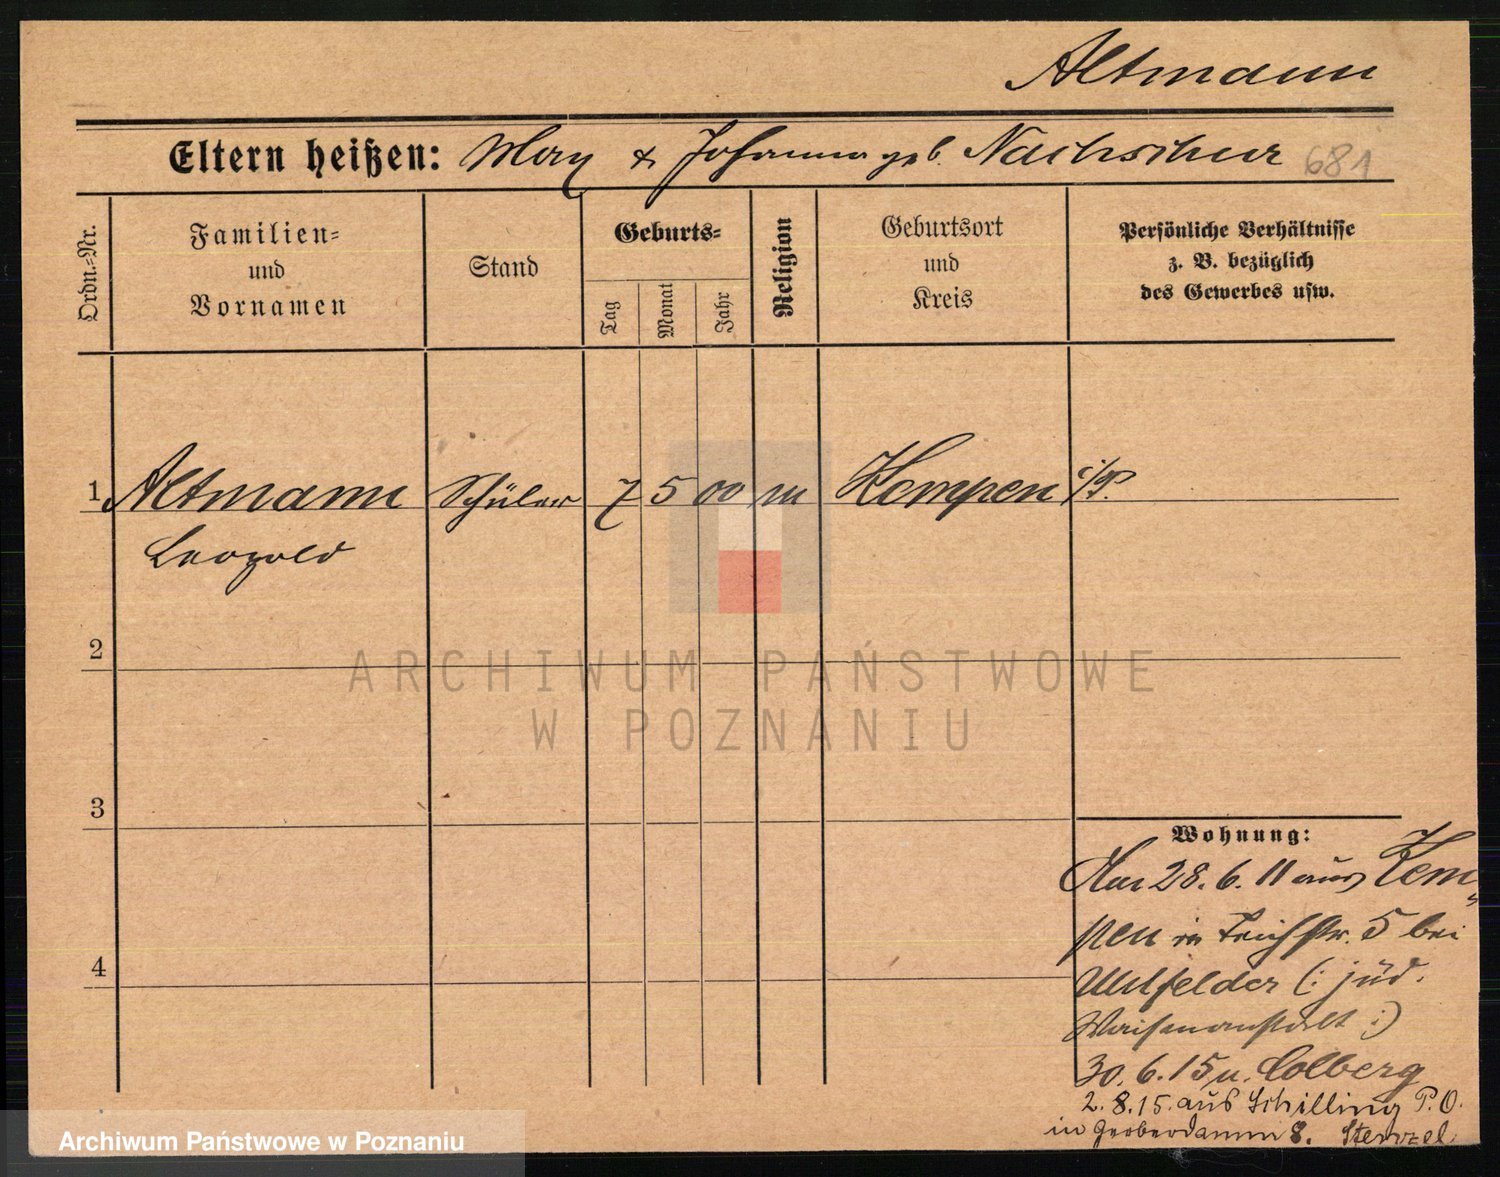 Altmann
Eltern heißen: Max & Johanna geb. Nachschur 681
Ordn.=Nr.
Familien=
und
Vornamen
Stand
Geburts=
Tag
Monat
Jahr
Religion
Geburtsort
und
Kreis
Persönliche Verhältnisse
z. B. bezüglich
des Gewerbes usw.
1 Altmann Schüler 7 5 00 m Kempen i/P.
Leopold
2
3
4
Wohnung:
28. 6. 11 aus Kem=
pen in Teichstr. 5 bei
Wulfelder (: jüd.
Waisenanstalt :)
30. 6. 15 n. Colberg
2. 8. 15. aus Schilling P. O.
in Gerberdamm 8.
ARCHIWUM PAŃSTWOWE
W POZNANIU
Archiwum Państwowe w Poznaniu